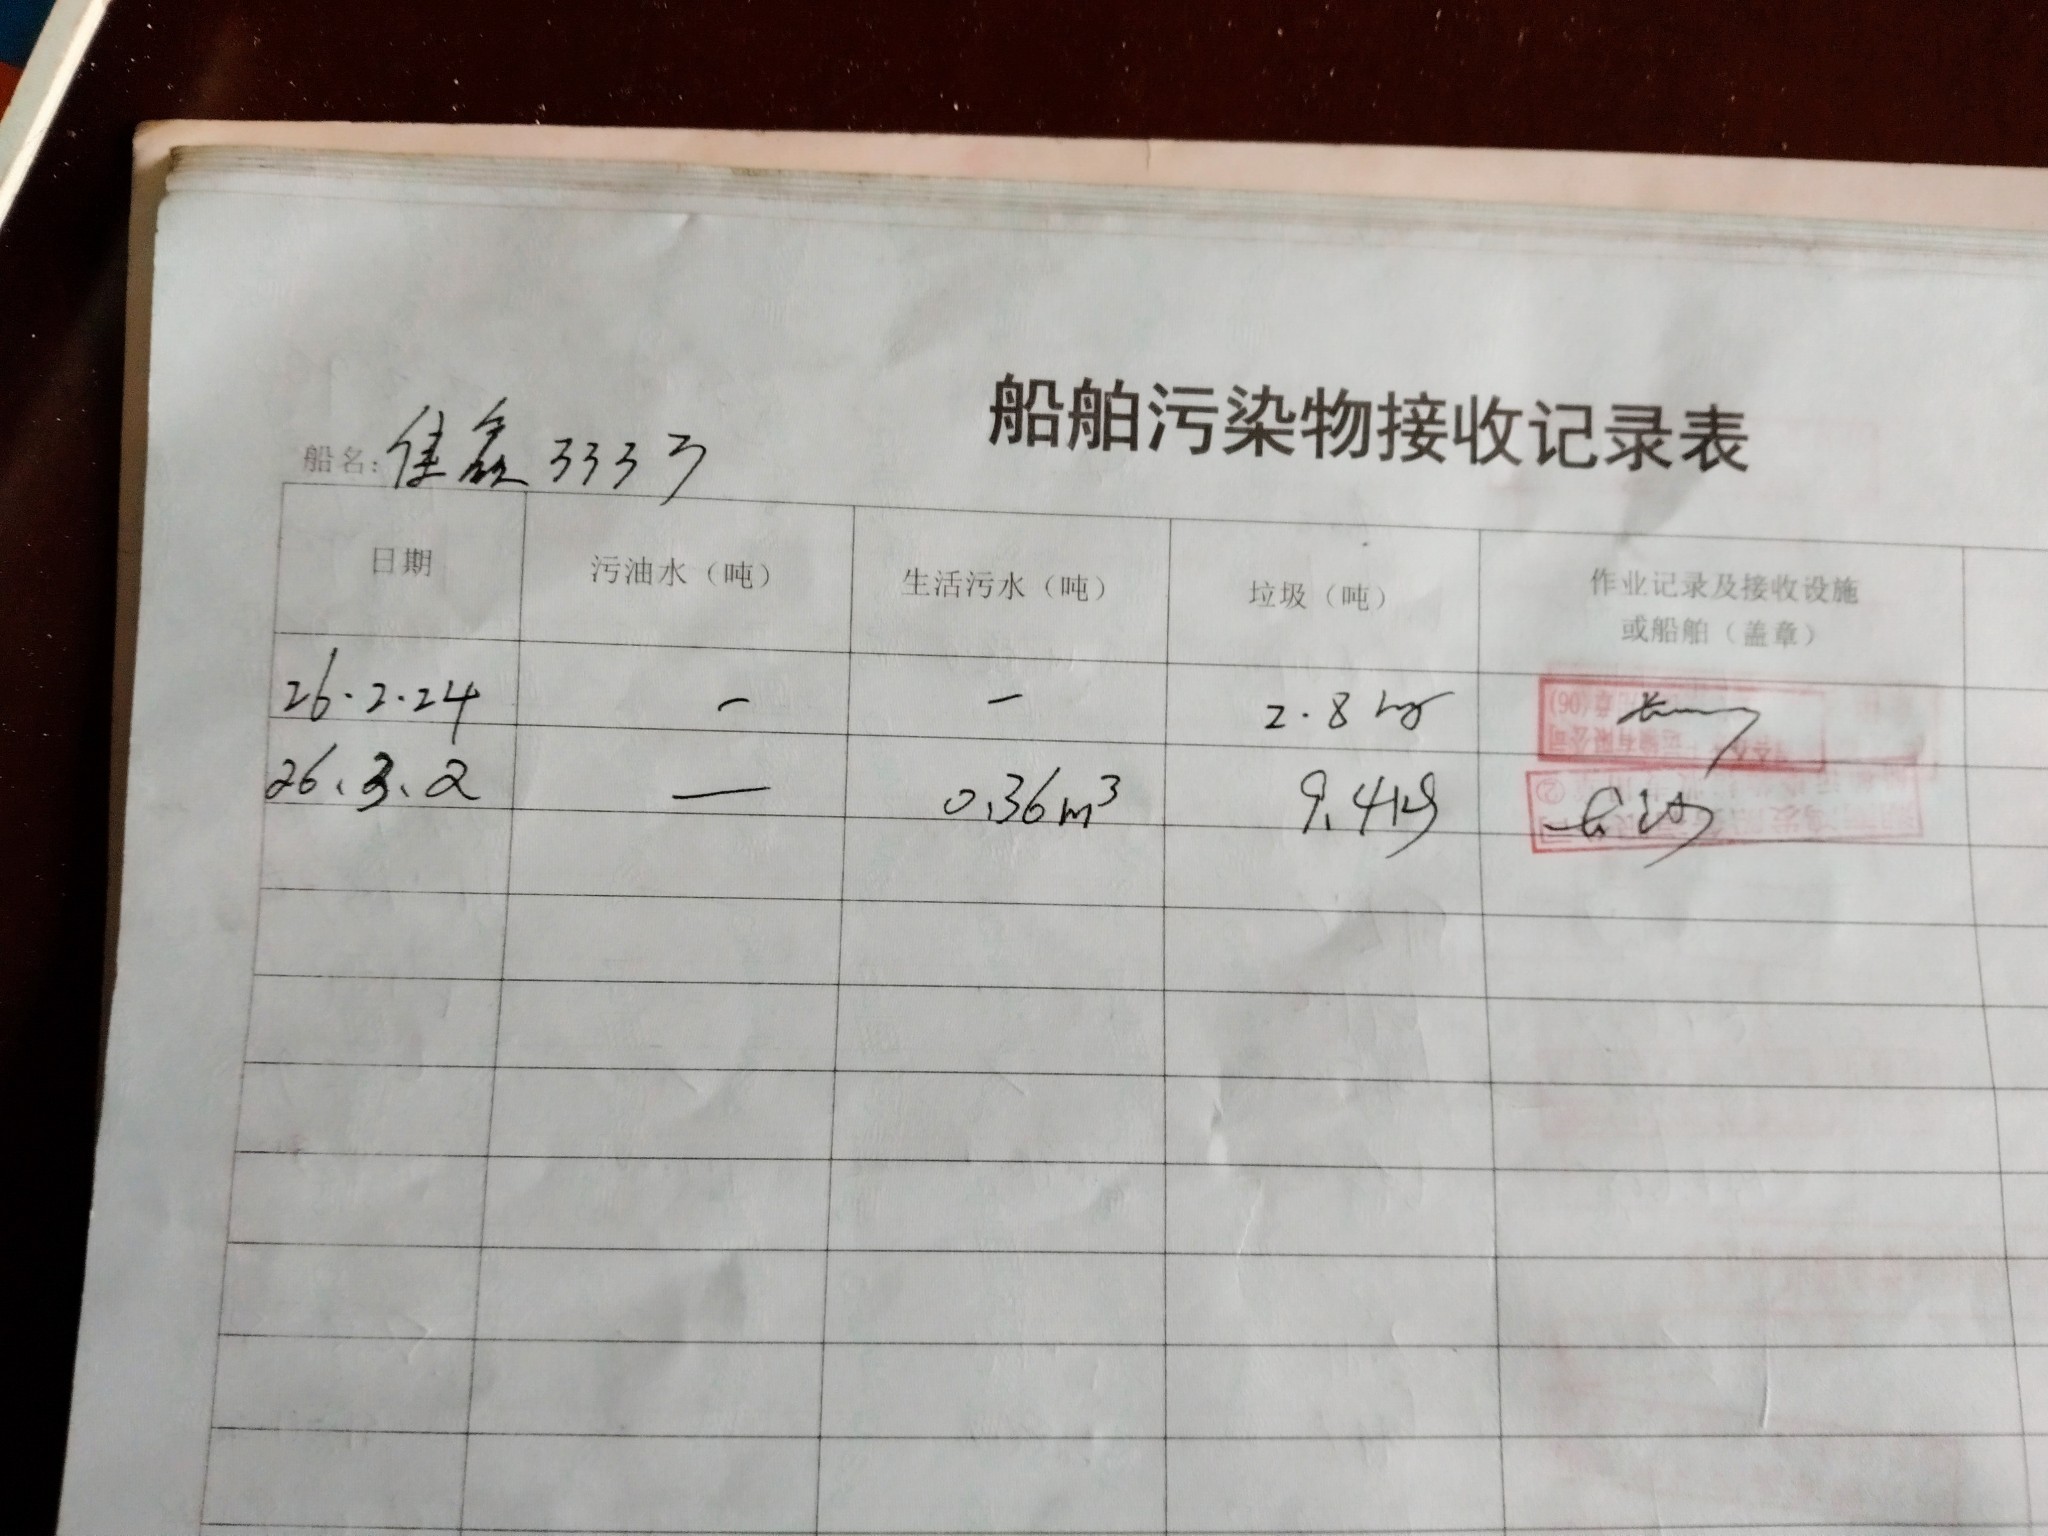 船舶污染物接收记录表
船名: 佳鑫3333
日期 污油水（吨） 生活污水（吨） 垃圾（吨） 作业记录及接收设施
或船舶（盖章）
26.2.24 — — 2.8 kg
26.3.2 — 0.36m³ 9.4kg